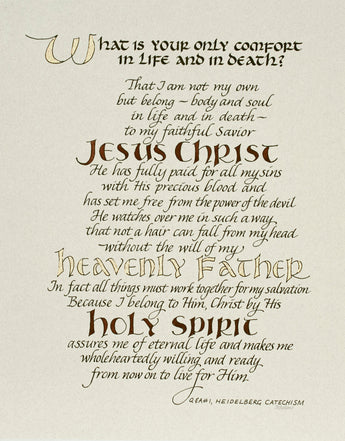 What is your only comfort
in life and in death?
That I am not my own
but belong – body and soul
in life and in death –
to my faithful Savior
Jesus Christ
He has fully paid for all my sins
with His precious blood and
has set me free from the power of the devil
He watches over me in such a way
that not a hair can fall from my head
without the will of my
Heavenly Father
In fact all things must work together for my salvation
Because I belong to Him, Christ by His
Holy Spirit
assures me of eternal life and makes me
wholeheartedly willing and ready
from now on to live for Him.
Q&A#1, Heidelberg Catechism